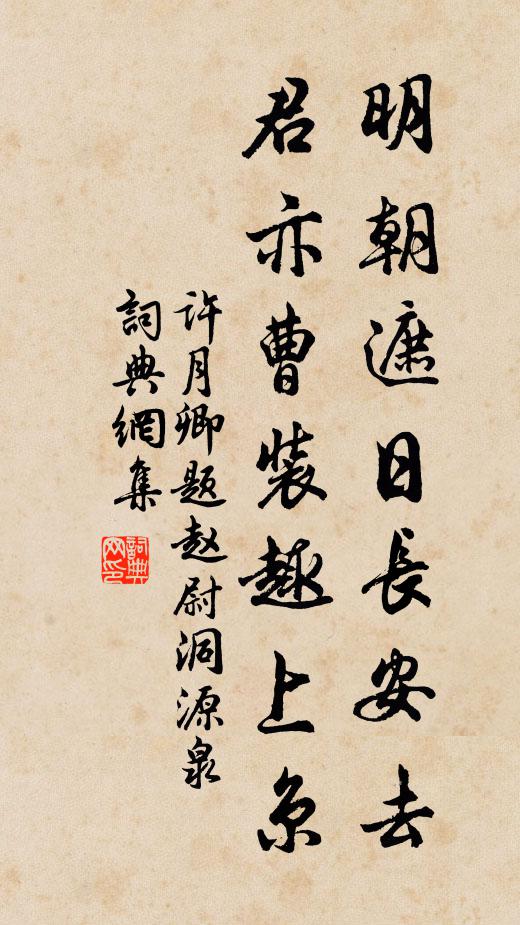 明朝遮日長安去
君亦曹裝趣上京
許月卿題赵尉洞源泉
詞典網集
詞典网印